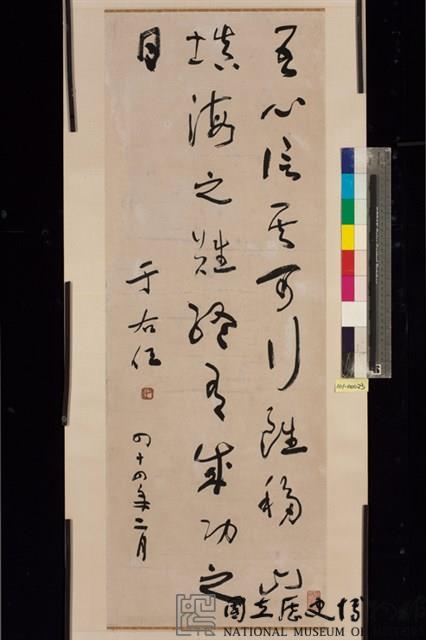 吾心信其可行雖移山
填海之難終有成功之
日
于右任
四十四年二月
國立歷史博物館
NATIONAL MUSEUM OF HISTORY